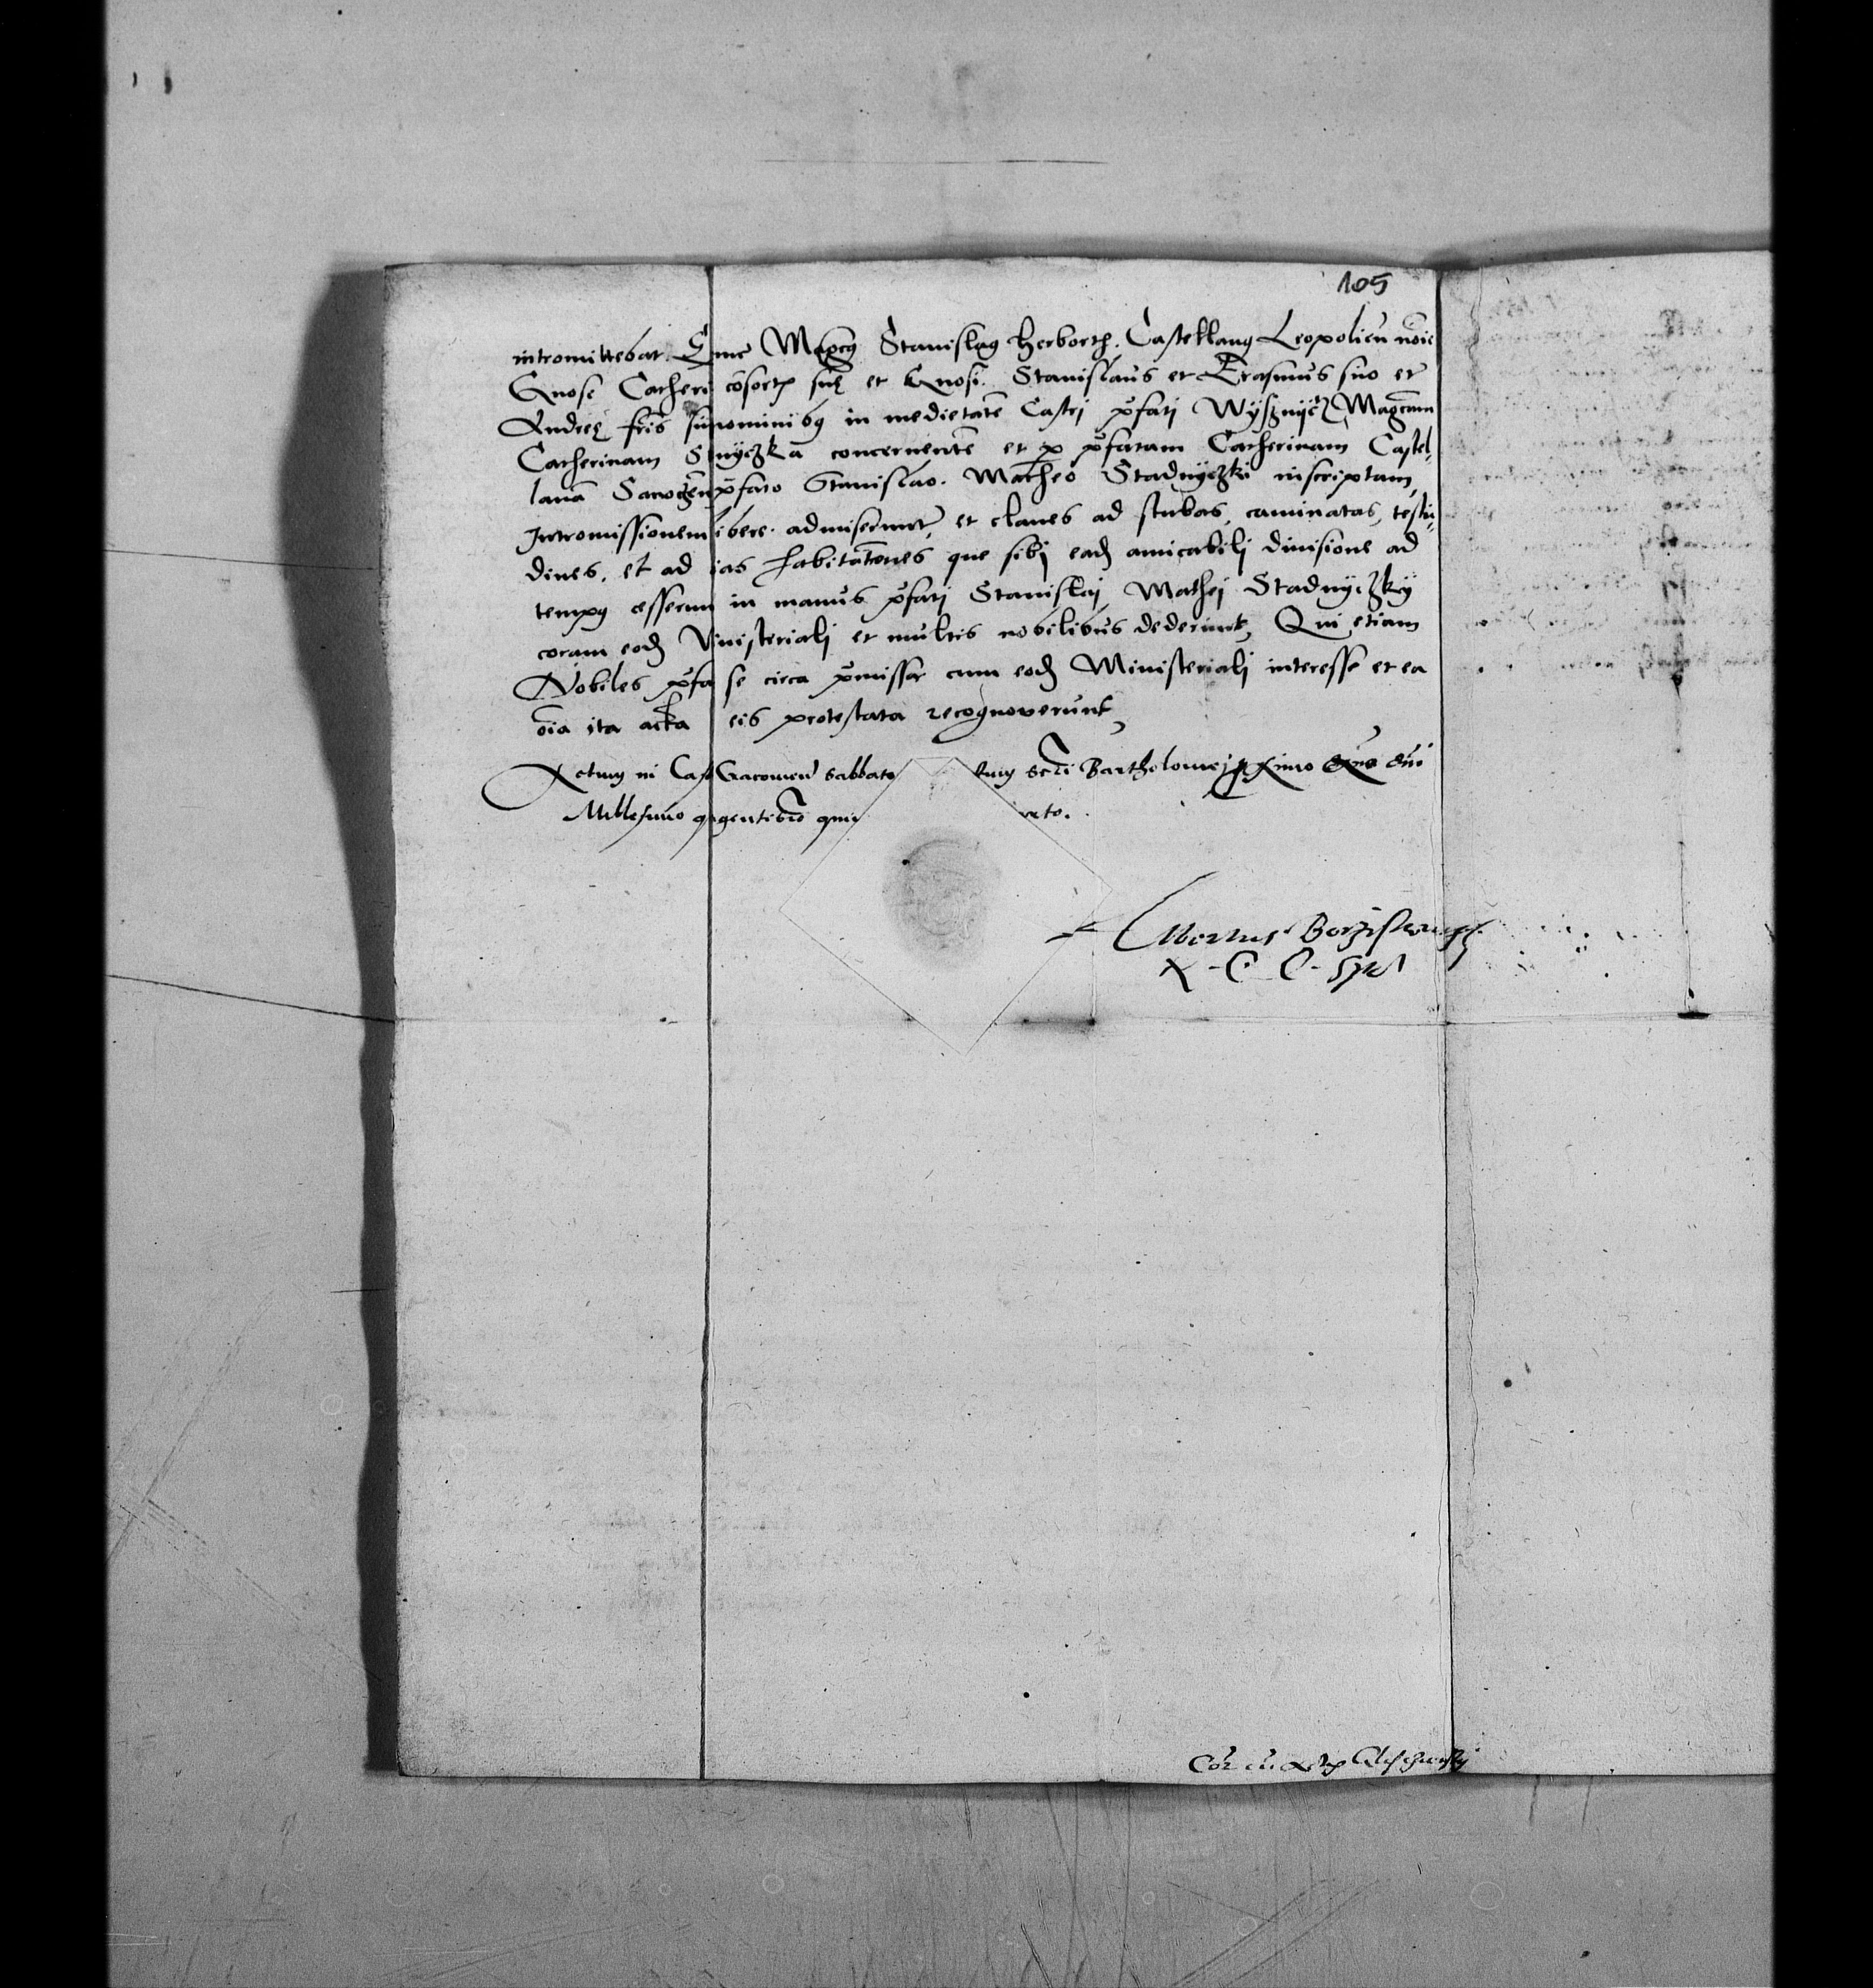 105
intromittebat. Magcus Stanislaus Herborth. Castellanus Leopolien̄ noīe
Gnose Catheri cōsortis suę et Gnosi. Stanislaus et Erasmus suo et
Andreę frīs nominibus in medietatē Castri p̄fati Wysznycz Magcam
Catherinam S nyczka concernentē et per p̄fatam Catherinam Castel-
lanā Sanocēn p̄fato Stanislao. Matheo Stadnyczki inscriptam,
Intromissionem ibere. admiserunt, et claues ad stubas, caminatas, testu-
dines, et ad ias habitatōnes que sibj eadem amicabilj diuisione ad
tempus cesserun in manus p̄fatj Stanislaj Mathej Stadnyczky
coram eodem inisterialj et multis nobilibus dederunt, Qui etiam
Nobiles p̄fa se circa p̄missa cum eodem Ministerialj interesse et ea
oīa ita acta eis protestata recognouerunt,
Actum in Cast Cracouien̄ sabbato scti Bartholomej pximo Dnī
Millesimo q gentesīo quin to.
Albertus
Cor cū